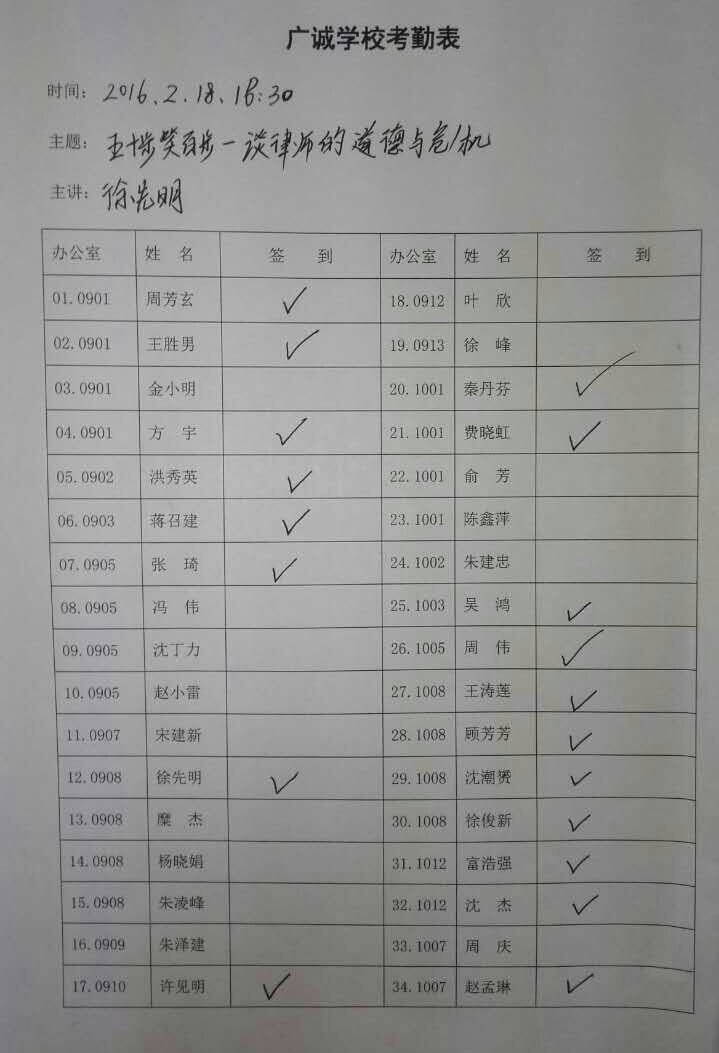 广诚学校考勤表
时间：2016.2.18.18:30
主题：五十步笑百步一谈律师的道德与危机
主讲：徐先明
办公室 姓 名 签 到 办公室 姓 名 签 到
01.0901 周芳玄 ✓ 18.0912 叶 欣
02.0901 王胜男 ✓ 19.0913 徐 峰
03.0901 金小明 20.1001 秦丹芬 ✓
04.0901 方 宇 ✓ 21.1001 费晓虹 ✓
05.0902 洪秀英 ✓ 22.1001 俞 芳
06.0903 蒋召建 ✓ 23.1001 陈鑫萍
07.0905 张 琦 ✓ 24.1002 朱建忠
08.0905 冯 伟 25.1003 吴 鸿 ✓
09.0905 沈丁力 26.1005 周 伟 ✓
10.0905 赵小雷 27.1008 王涛莲 ✓
11.0907 宋建新 28.1008 顾芳芳 ✓
12.0908 徐先明 ✓ 29.1008 沈潮赟 ✓
13.0908 糜 杰 30.1008 徐俊新 ✓
14.0908 杨晓娟 31.1012 富浩强 ✓
15.0908 朱凌峰 32.1012 沈 杰 ✓
16.0909 朱泽建 33.1007 周 庆
17.0910 许见明 ✓ 34.1007 赵孟琳 ✓